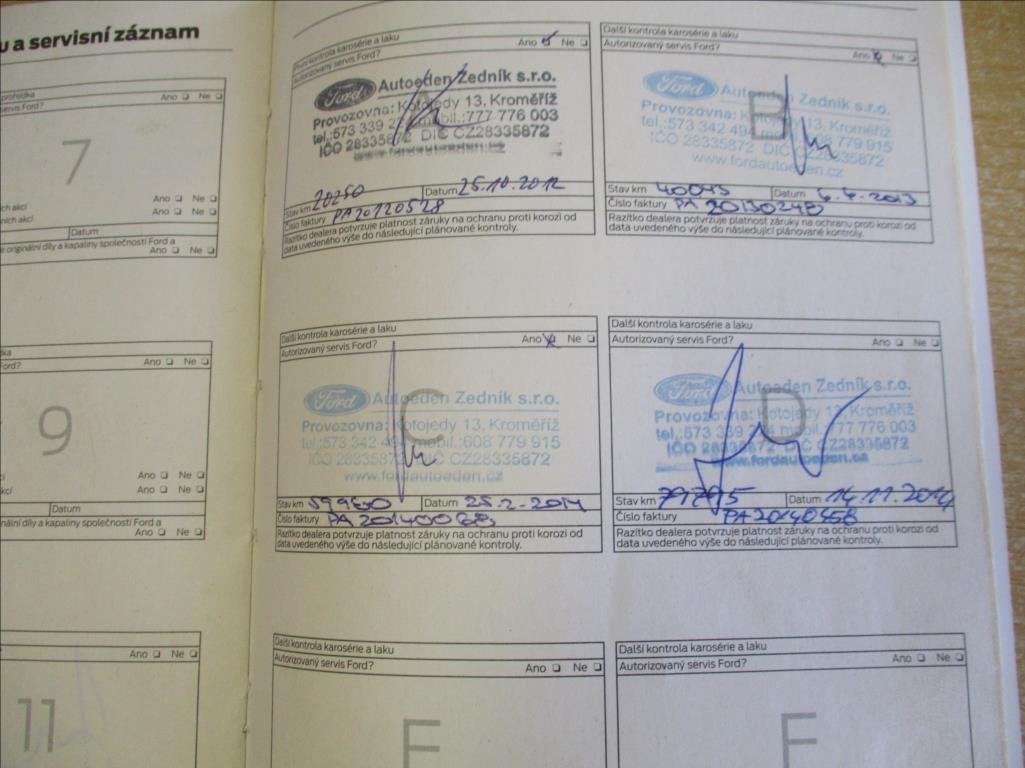 u a servisní záznam
prohlídka
servis Ford?
Ano Ne
7
ích akcí
Ano Ne
ních akcí
Ano Ne
Datum
e originální díly a kapaliny společnosti Ford a
Ano Ne
dka
Ford?
Ano Ne
9
cí
Ano Ne
akcí
Ano Ne
Datum
nální díly a kapaliny společnosti Ford a
Ano Ne
Ano Ne
11
První kontrola karosérie a laku
Autorizovaný servis Ford?
Ano Ne
A
Ford Autoeden Zedník s.r.o.
Provozovna: Kotojedy 13, Kroměříž
tel.:573 339 274 mobil.:777 776 003
IČO 28335872 DIČ CZ28335872
www.fordautoeden.cz
Stav km 20250 Datum 25.10.2012
Číslo faktury PA20120528
Razítko dealera potvrzuje platnost záruky na ochranu proti korozi od
data uvedeného výše do následující plánované kontroly.
Další kontrola karosérie a laku
Autorizovaný servis Ford?
Ano Ne
B
Ford Autoeden Zedník s.r.o.
Provozovna: Kotojedy 13, Kroměříž
tel.:573 342 494 mobil.:608 779 915
IČO 28335872 DIČ CZ28335872
www.fordautoeden.cz
Stav km 40045 Datum 2013
Číslo faktury PA 20130248
Razítko dealera potvrzuje platnost záruky na ochranu proti korozi od
data uvedeného výše do následující plánované kontroly.
Další kontrola karosérie a laku
Autorizovaný servis Ford?
Ano Ne
C
Ford Autoeden Zedník s.r.o.
Provozovna: Kotojedy 13, Kroměříž
tel.:573 342 494 mobil.:608 779 915
IČO 28335872 DIČ CZ28335872
www.fordautoeden.cz
Stav km Datum 25.2.2014
Číslo faktury PA 20140088
Razítko dealera potvrzuje platnost záruky na ochranu proti korozi od
data uvedeného výše do následující plánované kontroly.
Další kontrola karosérie a laku
Autorizovaný servis Ford?
Ano Ne
D
Ford Autoeden Zedník s.r.o.
Provozovna: Kotojedy 13, Kroměříž
tel.:573 339 274 mobil.:777 776 003
IČO 28335872 DIČ CZ28335872
www.fordautoeden.cz
Stav km 79795 Datum 14.11.2014
Číslo faktury PA20140458
Razítko dealera potvrzuje platnost záruky na ochranu proti korozi od
data uvedeného výše do následující plánované kontroly.
Další kontrola karosérie a laku
Autorizovaný servis Ford?
Ano Ne
E
Další kontrola karosérie a laku
Autorizovaný servis Ford?
Ano Ne
F